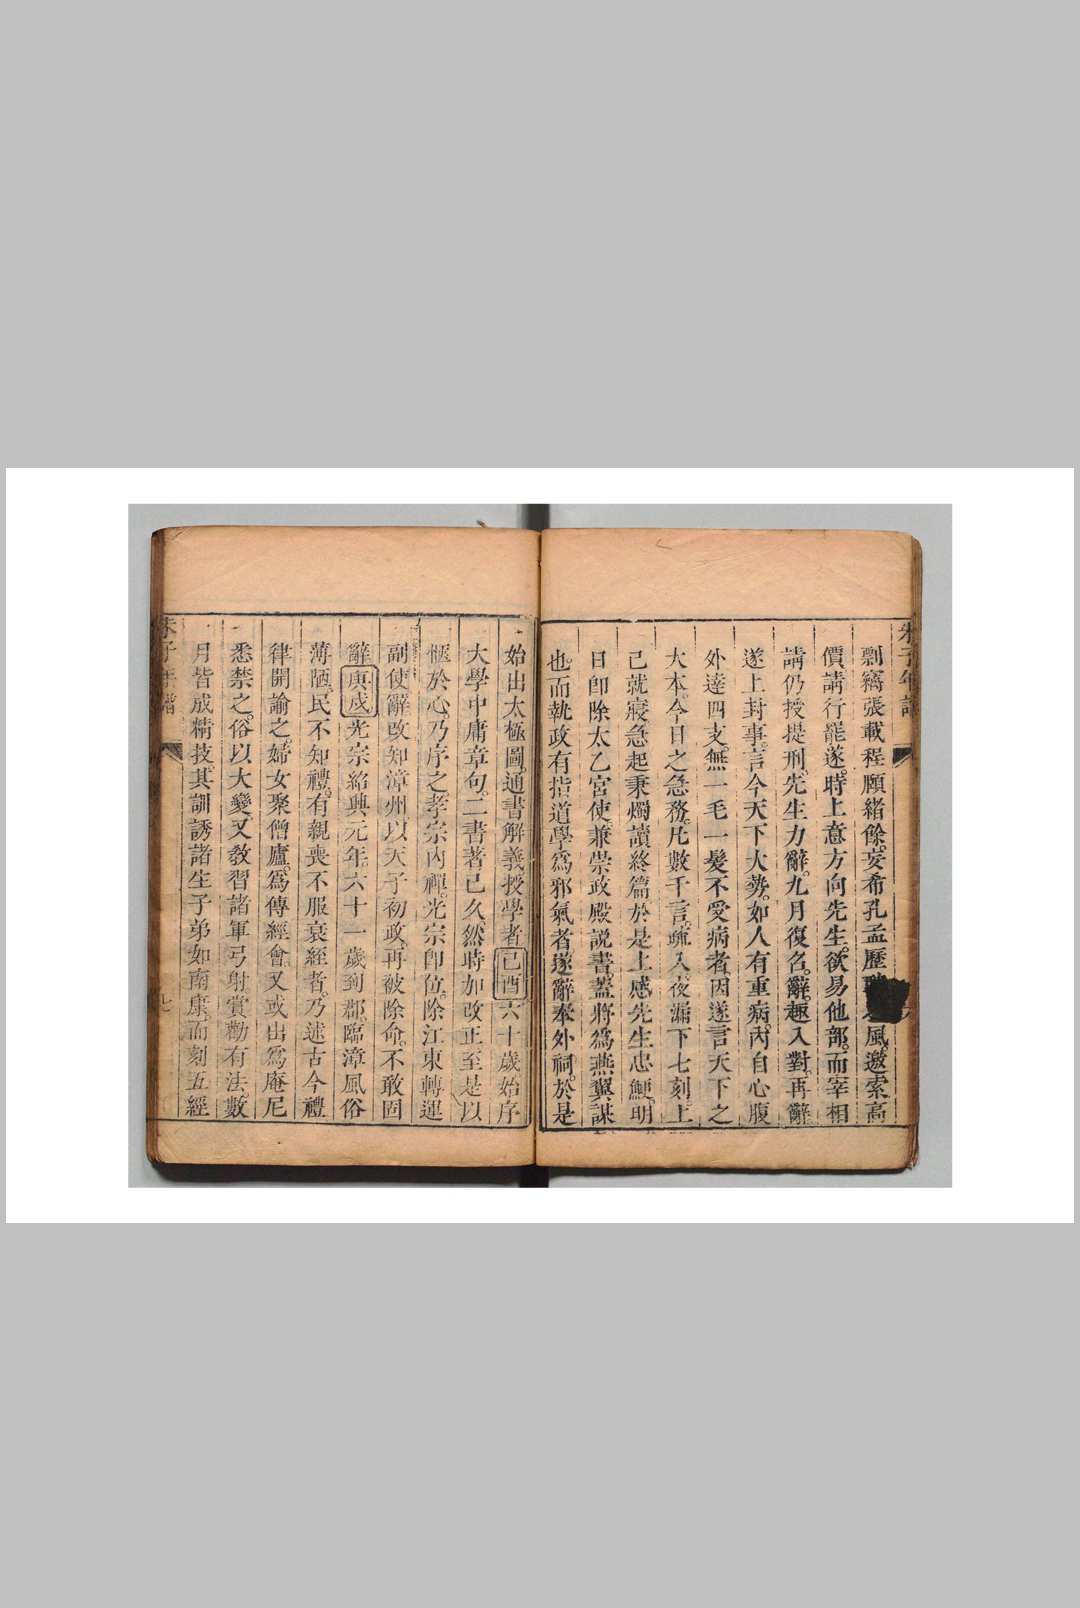 朱子年譜
剽竊張載程頤緒餘妄希孔孟歷 風邀索高
價請行罷遂時上意方向先生欲易他部而宰相
請仍授提刑先生力辭九月復召辭趣入對再辭
遂上封事言今天下大勢如人有重病內自心腹
外達四支無一毛一髮不受病者因遂言天下之
大本今日之急務凡數千言疏入夜漏下七刻上
已就寢急起秉燭讀終篇於是上感先生忠鯁明
日卽除太乙宮使兼崇政殿說書蓋將爲燕翼謀
也而執政有指道學爲邪氣者遂辭奉外祠於是
始出太極圖通書解義授學者己酉六十歲始序
大學中庸章句二書著已久然時加改正至是以
愜於心乃序之孝宗內禪光宗卽位除江東轉運
副使辭改知漳州以天子初政再被除命不敢固
辭庚戌光宗紹興元年六十一歲到郡臨漳風俗
薄陋民不知禮有親喪不服衰絰者乃述古今禮
律開諭之婦女聚僧廬爲傳經會又或出爲庵尼
悉禁之俗以大變又教習諸軍弓射賞勸有法數
月皆成精技其訓誘諸生子弟如南康而刻五經
朱子年譜
七